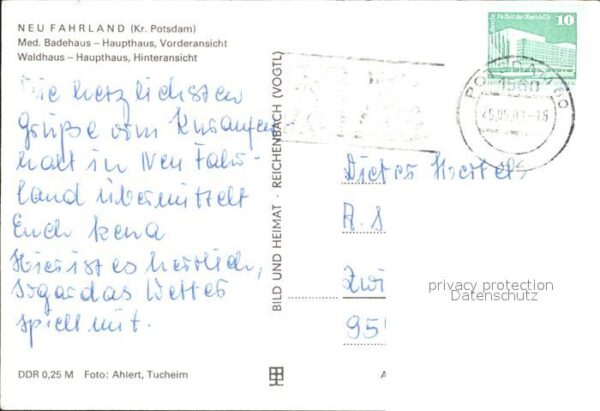 NEU FAHRLAND (Kr. Potsdam)
Med. Badehaus – Haupthaus, Vorderansicht
Waldhaus – Haupthaus, Hinteransicht
Die herzlichsten
Grüße vom Kuraufen
halt in Neu Fahr-
land übermittelt
Euch
Hier ist es herrlich,
sogar das Wetter
spielt mit.
DDR 0,25 M Foto: Ahlert, Tucheim
BILD UND HEIMAT · REICHENBACH (VOGTL)
Berlin Palast der Republik 10
POTSDAM
1560
Dieter
A. S
Zwi
95
privacy protection
Datenschutz
A